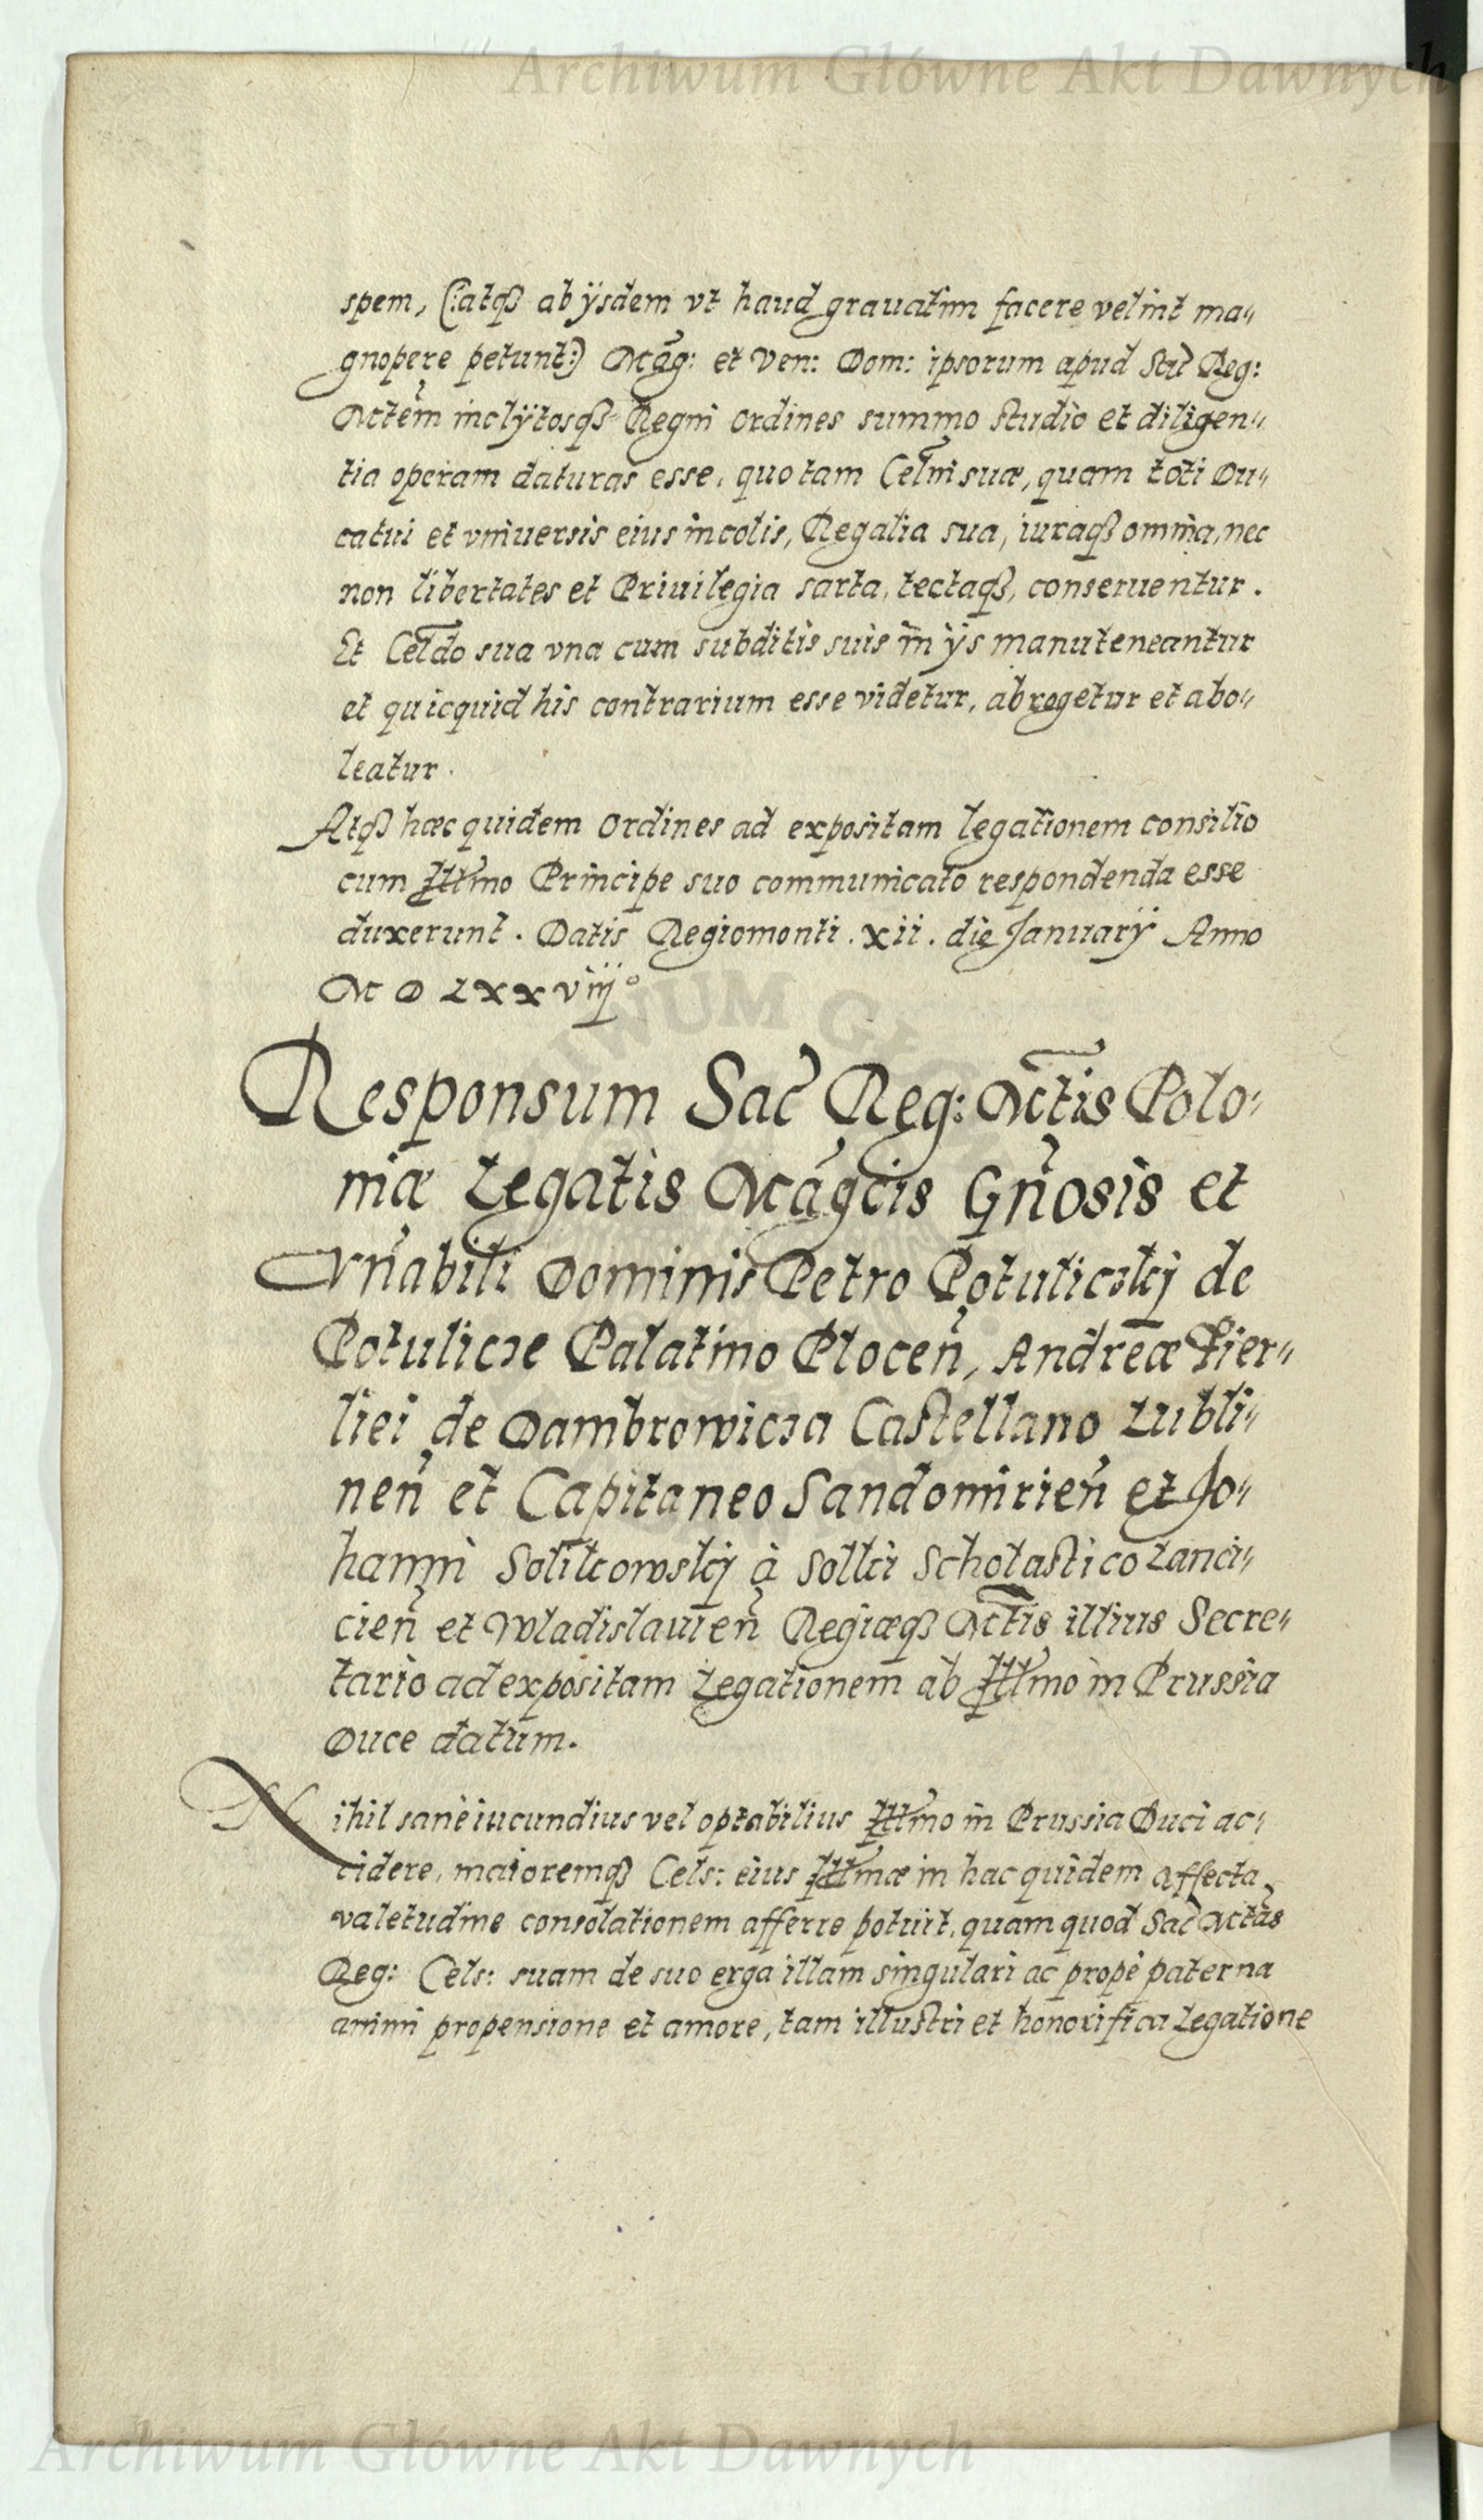 Archiwum Główne Akt Dawnych
spem, (:atqȝ ab ijsdem vt haud grauatim facere velint ma„
gnopere petunt:) Mag: et Ven: Dom: ipsorum apud Sac Reg:
Mctem inclÿtosqȝ Regni Ordines summo studio et diligen„
tia operam daturas esse, quo tam Celni suæ, quam toti Du„
catui et vniuersis eius incolis, Regalia sua, iuraqȝ omnia, nec
non libertates et Priuilegia sarta, tectaqȝ, conseruentur.
Et Celdo sua vna cum subditis suis in ijs manuteneantur
et quicquid his contrarium esse videtur, abrogetur et abo„
leatur.
Atqȝ hæc quidem Ordines ad expositam legationem consilio
cum Illmo Principe suo communicato respondenda esse
duxerunt. Datis Regiomonti. xii. die Januarÿ Anno
M D LXXViij°
Responsum Sac Reg: Mctis Polo„
niæ Legatis Magcis Gnosis et
Vnabili Dominis Petro Potulicskj de
Potulicze Palatino Plocen, Andreæ Fier„
liei de Dambrowicza Castellano Lubli„
nen et Capitaneo Sandomirien et Jo„
hanni Solikowskj à Solki Scholastico Lanci„
cien et Wladislauien Regiæqȝ Mctis illius Secre„
tario ad expositam Legationem ab Illmo in Prussia
Duce datum.
Nihil sanè iucundius vel optabilius Illmo in Prussia Duci ac„
cidere, maioremqȝ Cels: eius Illmæ in hac quidem affecta
valetudine consolationem afferre potuit, quam quod Sac Mctas
Reg: Cels: suam de suo erga illam singulari ac propè paterna
animi propensione et amore, tam illustri et honorifica Legatione
Archiwum Główne Akt Dawnych